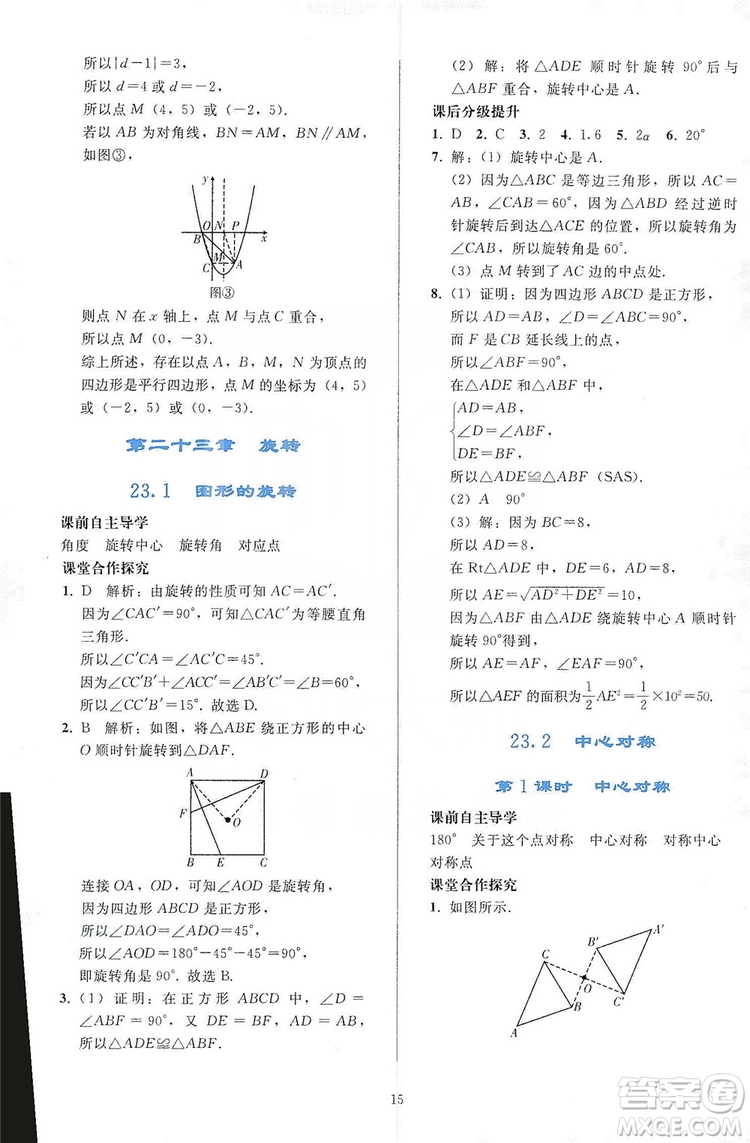 所以|d−1|=3,
所以 d=4或 d=−2,
所以点 M (4, 5) 或 (−2, 5).
若以 AB 为对角线, BN=AM, BN∥AM,
如图③,
y
O N P
B x
M
C A
图③
则点 N 在 x 轴上, 点 M 与点 C 重合,
所以点 M (0, −3).
综上所述, 存在以点 A, B, M, N 为顶点的
四边形是平行四边形, 点 M 的坐标为 (4, 5)
或 (−2, 5) 或 (0, −3).
第二十三章 旋转
23.1 图形的旋转
课前自主导学
角度 旋转中心 旋转角 对应点
课堂合作探究
1. D 解析: 由旋转的性质可知 AC=AC′.
因为∠CAC′=90°, 可知△CAC′为等腰直角
三角形.
所以∠C′CA=∠AC′C=45°.
因为∠CC′B′+∠ACC′=∠AB′C′=∠B=60°,
所以∠CC′B′=15°. 故选 D.
2. B 解析: 如图, 将△ABE 绕正方形的中心
O 顺时针旋转到△DAF.
A D
F
O
B E C
连接 OA, OD, 可知∠AOD 是旋转角,
因为四边形 ABCD 是正方形,
所以∠DAO=∠ADO=45°,
所以∠AOD=180°−45°−45°=90°,
即旋转角是 90°. 故选 B.
3. (1) 证明: 在正方形 ABCD 中, ∠D=
∠ABF=90°, 又 DE=BF, AD=AB,
所以△ADE≌△ABF.
(2) 解: 将△ADE 顺时针旋转 90°后与
△ABF 重合, 旋转中心是 A.
课后分级提升
1. D 2. C 3. 2 4. 1.6 5. 2α 6. 20°
7. 解: (1) 旋转中心是 A.
(2) 因为△ABC 是等边三角形, 所以 AC=
AB, ∠CAB=60°. 因为△ABD 经过逆时
针旋转后到达△ACE 的位置, 所以旋转角为
∠CAB, 所以旋转角为 60°.
(3) 点 M 转到了 AC 边的中点处.
8. (1) 证明: 因为四边形 ABCD 是正方形,
所以 AD=AB, ∠D=∠ABC=90°,
而 F 是 CB 延长线上的点,
所以∠ABF=90°.
在△ADE 和△ABF 中,
AD=AB,
∠D=∠ABF,
DE=BF,
所以△ADE≌△ABF (SAS).
(2) A 90°
(3) 解: 因为 BC=8,
所以 AD=8.
在 Rt△ADE 中, DE=6, AD=8,
所以 AE=√AD²+DE²=10,
因为△ABF 由△ADE 绕旋转中心 A 顺时针
旋转 90°得到,
所以 AE=AF, ∠EAF=90°,
所以△AEF 的面积为1/2 AE²=1/2×10²=50.
23.2 中心对称
第1课时 中心对称
课前自主导学
180° 关于这个点对称 中心对称 对称中心
对称点
课堂合作探究
1. 如图所示.
A′
B′
C
O
C′
B
A
15
答案圈
MXQE.COM